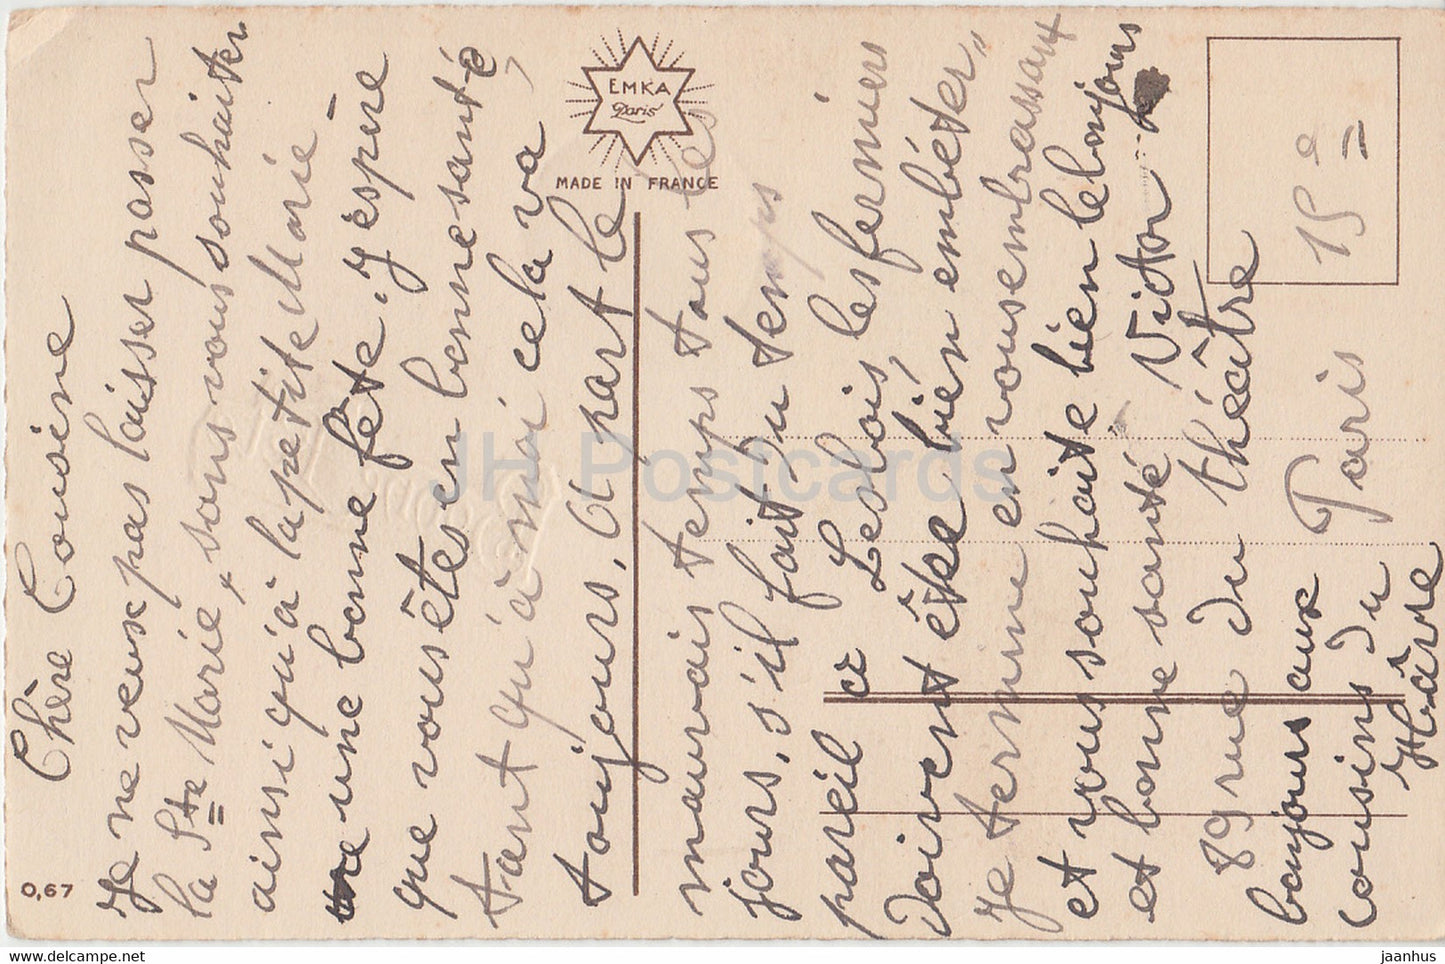 Chère Cousine
Je ne veux pas laisser passer
la Ste Marie, sans vous souhaiter
ainsi qu'à la petite Marie
une bonne fête. J'espère
que vous êtes en bonne santé,
tant qu'à moi cela va
toujours, à part le
mauvais temps tous les
jours, s'il fait du temps
pareil à Lesbois, les fermiers
doivent être bien embêter,
Je termine en vous embrassant
et vous souhaite bien le bonjours
et bonne santé Victor
89 rue du théâtre
bonjours aux Paris
cousins du
Hâvre
15e
EMKA
Paris
MADE IN FRANCE
0,67
JH Postcards
www.delcampe.net
jaanhus